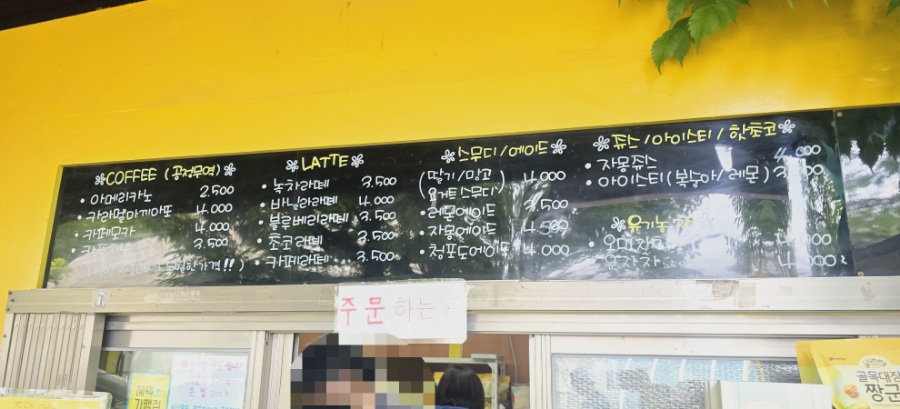 COFFEE (공정무역)
아메리카노 2.500
카라멜마끼아또 4.000
카페모카 4.000
3.500
가격!!)
LATTE
녹차라떼 3.500
바닐라라떼 4.000
블루베리라떼 3.500
초코라떼 3.500
카페라떼 3.500
스무디/에이드
(딸기/망고
요거트스무디) 4.000
레몬에이드 3.500
자몽에이드 4.500
청포도에이드 4.000
쥬스/아이스티/핫초코
자몽쥬스 4.000
아이스티(복숭아/레몬)
유기농
유자차 4.000
주문 하는
골목대장
짱구